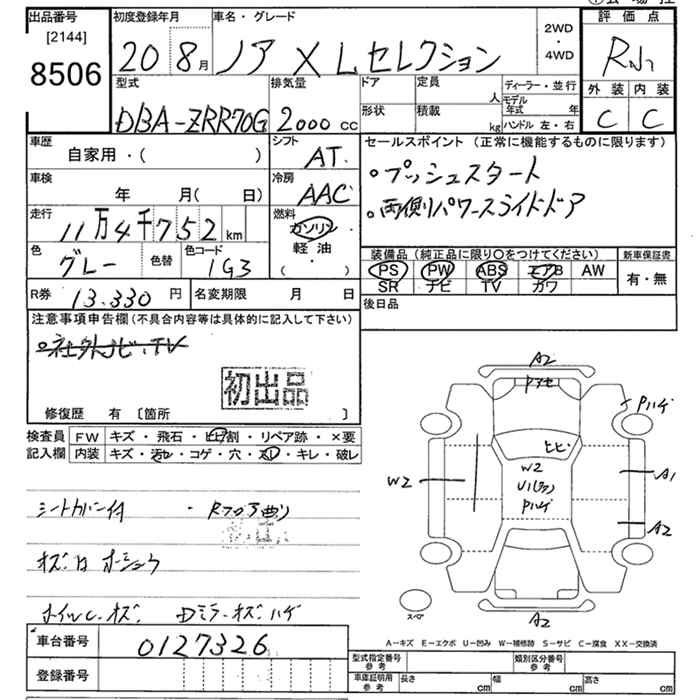 出品番号
[2144]
8506
初度登録年月
20 8月
車名・グレード
ノア X Lセレクション
2WD
・
4WD
評価点
外装 内装
C C
型式
DBA-ZRR70G
排気量
2000 cc
ドア
形状
定員 人
積載 kg
ディーラー・並行
モデル年式 年
ハンドル 左・右
車歴
自家用・( )
シフト
AT
車検
年 月( 日)
冷房
AAC
走行
11万4千752 km
燃料
ガソリン
軽油
( ・ )
色
グレー
色替
色コード
1G3
R券
13.330 円
名変期限 月 日
セールスポイント (正常に機能するものに限ります)
・プッシュスタート
・両側パワースライドドア
装備品 (純正品に限り○をつけてください)
PS PW ABS エアB AW
SR ナビ TV カワ
新車保証書
有・無
後日品
注意事項申告欄 (不具合内容等は具体的に記入して下さい)
・社外ナビ、TV
初出品
修復歴 有 [箇所 ]
検査員記入欄
FW キズ・飛石・ヒビ割・リペア跡・×要
内装 キズ・汚れ・コゲ・穴・スレ・キレ・破レ
シートカバー付
・Rフロア曲り
ホイルC・キズ、Dミラーキズハゲ
A2
Pハゲ
W2
ヒビ
W2
Pハゲ
A1
A2
スペア
A2
A−キズ E−エクボ U−凹み W−補修跡 S−サビ C−腐食 XX−交換済
車台番号
0127326
登録番号
型式指定番号 参考
類別区分番号 参考
車庫証明用 参考
長さ cm
幅 cm
高さ cm